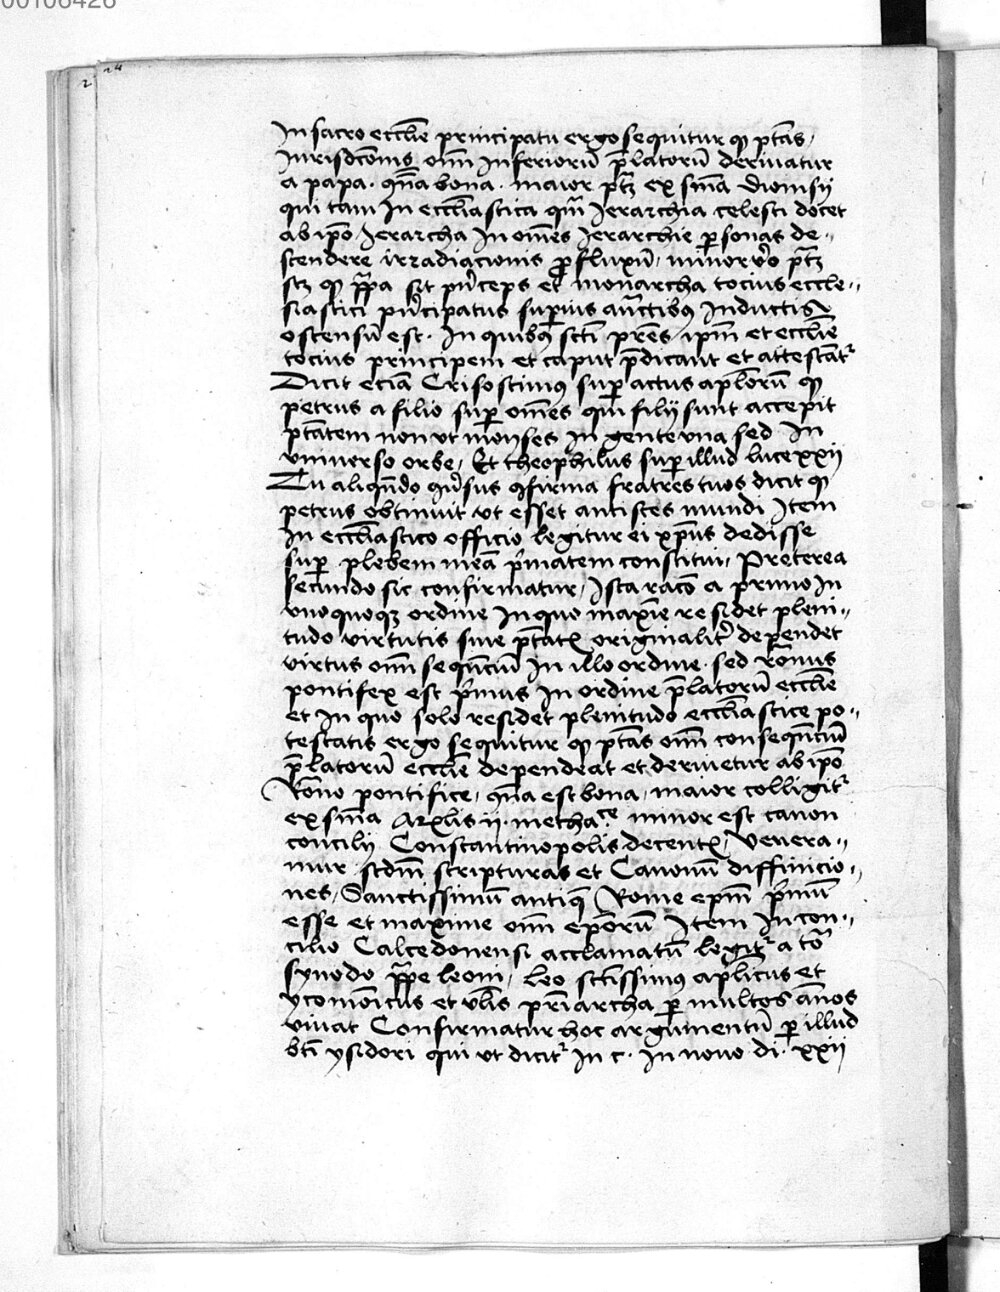 00106426
24
2
In sacro ecclīe principatu ergo sequitur ꝙ ptās
Iurisdcōnis om̄ Inferiorū p̄latorū deriuatur
a papa · qn̄a bona · maior ptꝫ ex snīa dionisij
qui tam In eccliastica qm̄ Ierarchia celesti docet
ab ipō Ierarcha In om̄es Ierarchie ꝑsonas de-
scendere irradiacionis ꝓfluxū · minor vo ptꝫ
scꝫ ꝙ pp̄a sit pn̄ceps et monarcha tocius eccle-
siastici pn̄cipatus supius auctibꝰ Inductis
ostensū est · In quibꝰ scti pr̄es ipm̄ et eccliē
tocius principem et caput p̄dicant et attestātr
Dicit eciā Crisostimꝰ suꝑ actus aplorū ꝙ
petrus a filio suꝑ om̄es qui filij sunt accepit
ptātem non vt moyses In gente vna sed In
vniuerso orbe / Et theophilus suꝑ illud luce xxij
Tu aliqn̄do ꝯuersus ꝯfirma fratres tuos dicit ꝙ
petrus obtinuit vt esset antistes mundi Item
In eccliastico officio legitur ei xp̄us dedisse
suꝑ plebem meā p̄matem constitui / Preterea
secundo sic confirmatur / Ista racō a primo In
vnoquoqꝫ ordine In quo maxīe residet pleni-
tudo virtutis siue ptātꝭ originalitr dependet
virtus om̄ sequēciū In illo ordine · sed rōnus
pontifex est p̄mus In ordine p̄latorū ecclīe
et In quo solo residet plenitudo eccliastice po-
testatis ergo sequitur ꝙ ptās om̄ consequēciū
p̄latorū ecclīe dependeat et deriuetur ab ipō
Rōno pontifice / qn̄a est bona / maior colligitr
ex snīa Arꝉis ij · methace minor est canon
concilij Constantinopolis decentꝭ / Venera-
mur scdm̄ scripturas et Canonū diffinicio-
nes / Sanctissimū antiq̄ Rome epm̄ p̄mū
esse et maxime om̄ epōrū Item In con-
cilio Calcedonensi acclamatū legitr a tō
synodo pp̄e leoni / Leo sctissimꝰ aplicus et
ycomōicus et vlis pr̄iarcha ꝑ multos annos
viuat Confirmatur hoc argumentū ꝑ illud
bti ysidori qui vt dicitr In c · In nouo di · xxij